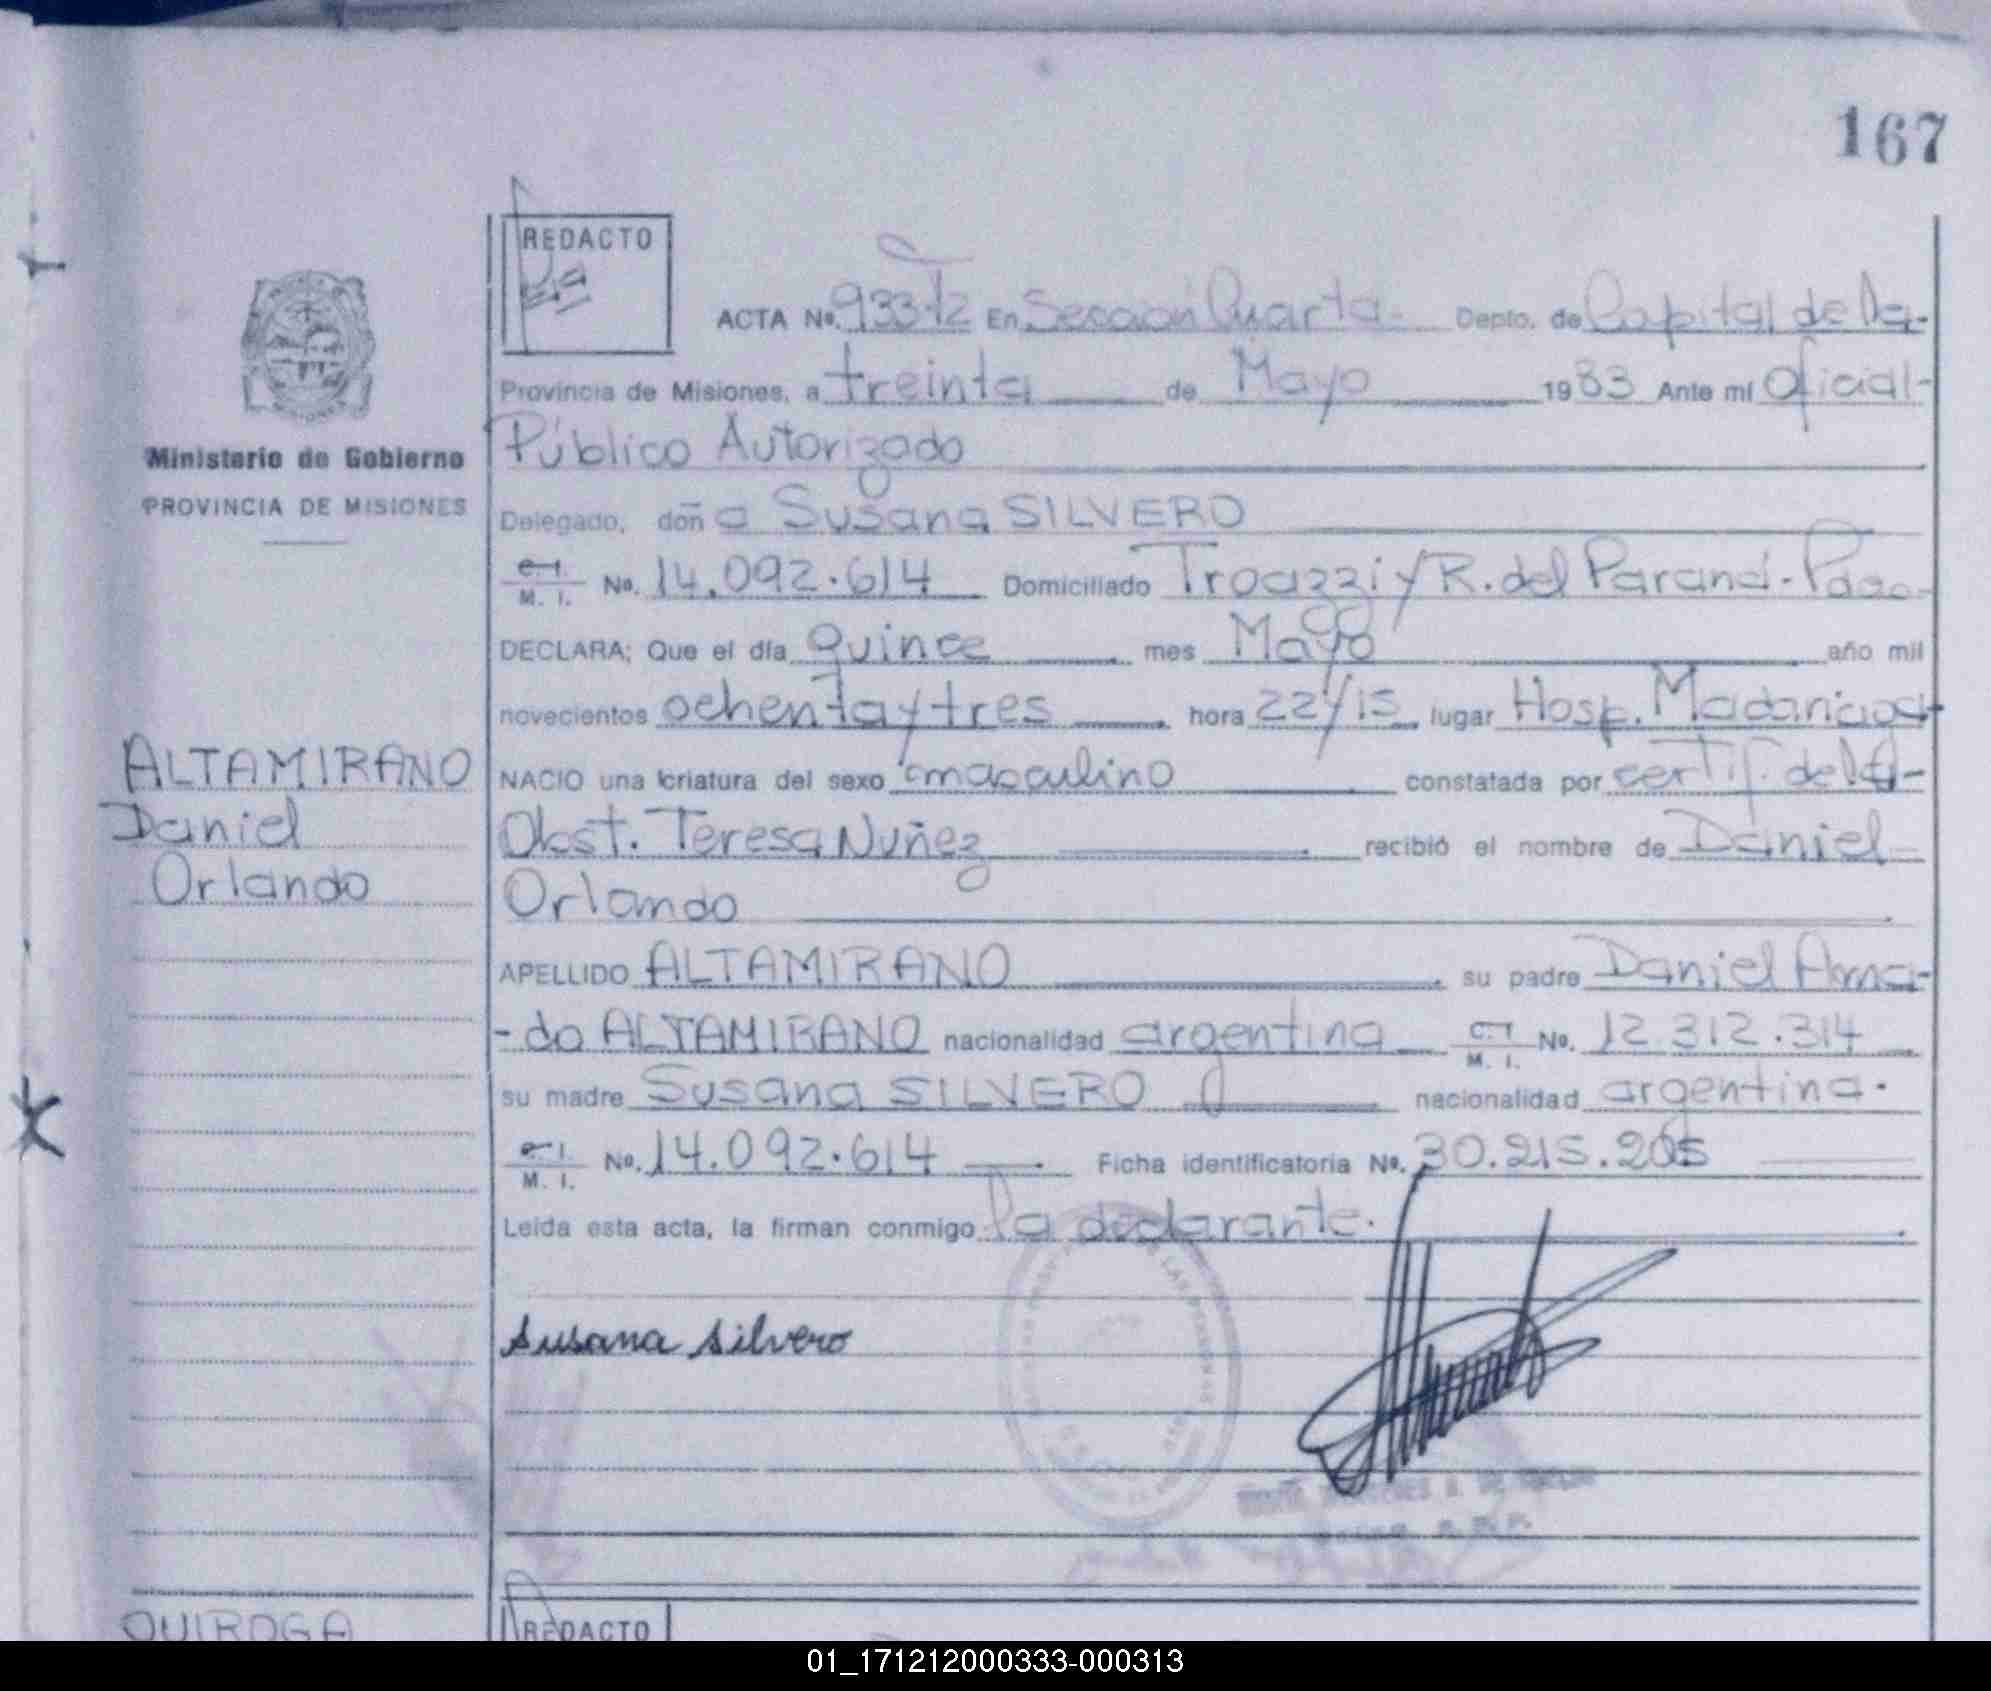 167
REDACTO
ACTA No. 933-T2 En Sección Cuarta. Depto. de Capital de la-
Provincia de Misiones, a treinta de Mayo 1983 Ante mí Oficial-
Público Autorizado
Ministerio de Gobierno
PROVINCIA DE MISIONES
Delegado, doña Susana SILVERO
C. I. M. I. No. 14.092.614 Domiciliado y R. del Paraná.-
DECLARA; Que el día Quince mes Mayo año mil
novecientos ochenta y tres hora 22 y 15 lugar Hosp. Madariaga
NACIO una criatura del sexo masculino constatada por certif. de la-
Obst. Teresa Nuñez recibió el nombre de Daniel
Orlando
ALTAMIRANO
Daniel
Orlando
APELLIDO ALTAMIRANO su padre Daniel Ama-
-do ALTAMIRANO nacionalidad argentina C. I. M. I. No. 12.312.314
su madre Susana SILVERO nacionalidad argentina.
C. I. M. I. No. 14.092.614 Ficha identificatoria No. 30.215.205
Leída esta acta, la firman conmigo la declarante.
Susana Silvero
QUIROGA
REDACTO
01_171212000333-000313